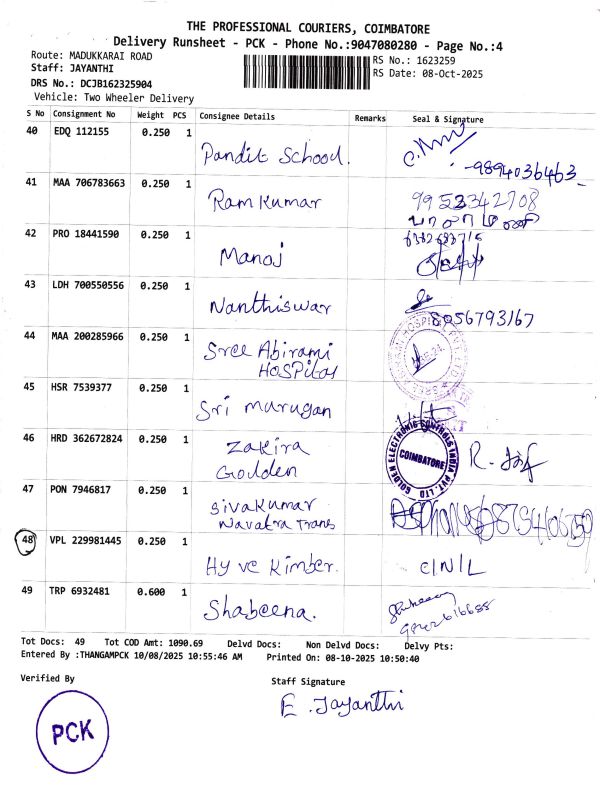 THE PROFESSIONAL COURIERS, COIMBATORE
Delivery Runsheet - PCK - Phone No.:9047080280 - Page No.:4
Route: MADUKKARAI ROAD
RS No.: 1623259
Staff: JAYANTHI
RS Date: 08-Oct-2025
DRS No.: DCJB162325904
Vehicle: Two Wheeler Delivery
S No Consignment No Weight PCS Consignee Details Remarks Seal & Signature
40 EDQ 112155 0.250 1
Pandit School.
9894036463
41 MAA 706783663 0.250 1
Ram Kumar 9952342708
42 PRO 18441590 0.250 1
Manoj
43 LDH 700550556 0.250 1
Nanthiswar 8056793167
44 MAA 200285966 0.250 1
Sree Abirami
HOSPital
45 HSR 7539377 0.250 1
Sri murugan
46 HRD 362672824 0.250 1
Zakira
Goulden
GOLDEN ELECTRONIC CONTROLS INDIA PVT. LTD
COIMBATORE
47 PON 7946817 0.250 1
Sivakumar
Navatra Trans
48 VPL 229981445 0.250 1
Hy ve Kimber. C/N/L
49 TRP 6932481 0.600 1
Shabeena.
Tot Docs: 49 Tot COD Amt: 1090.69 Delvd Docs: Non Delvd Docs: Delvy Pts:
Entered By :THANGAMPCK 10/08/2025 10:55:46 AM Printed On: 08-10-2025 10:50:40
Verified By Staff Signature
E. Jayanthi
PCK